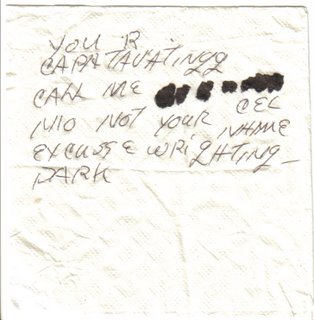 YOU R
CAPATAVATINGG
CALL ME
CEL
NIO NOT YOUR NHME
EXCUSE WRIGHTING
DARK